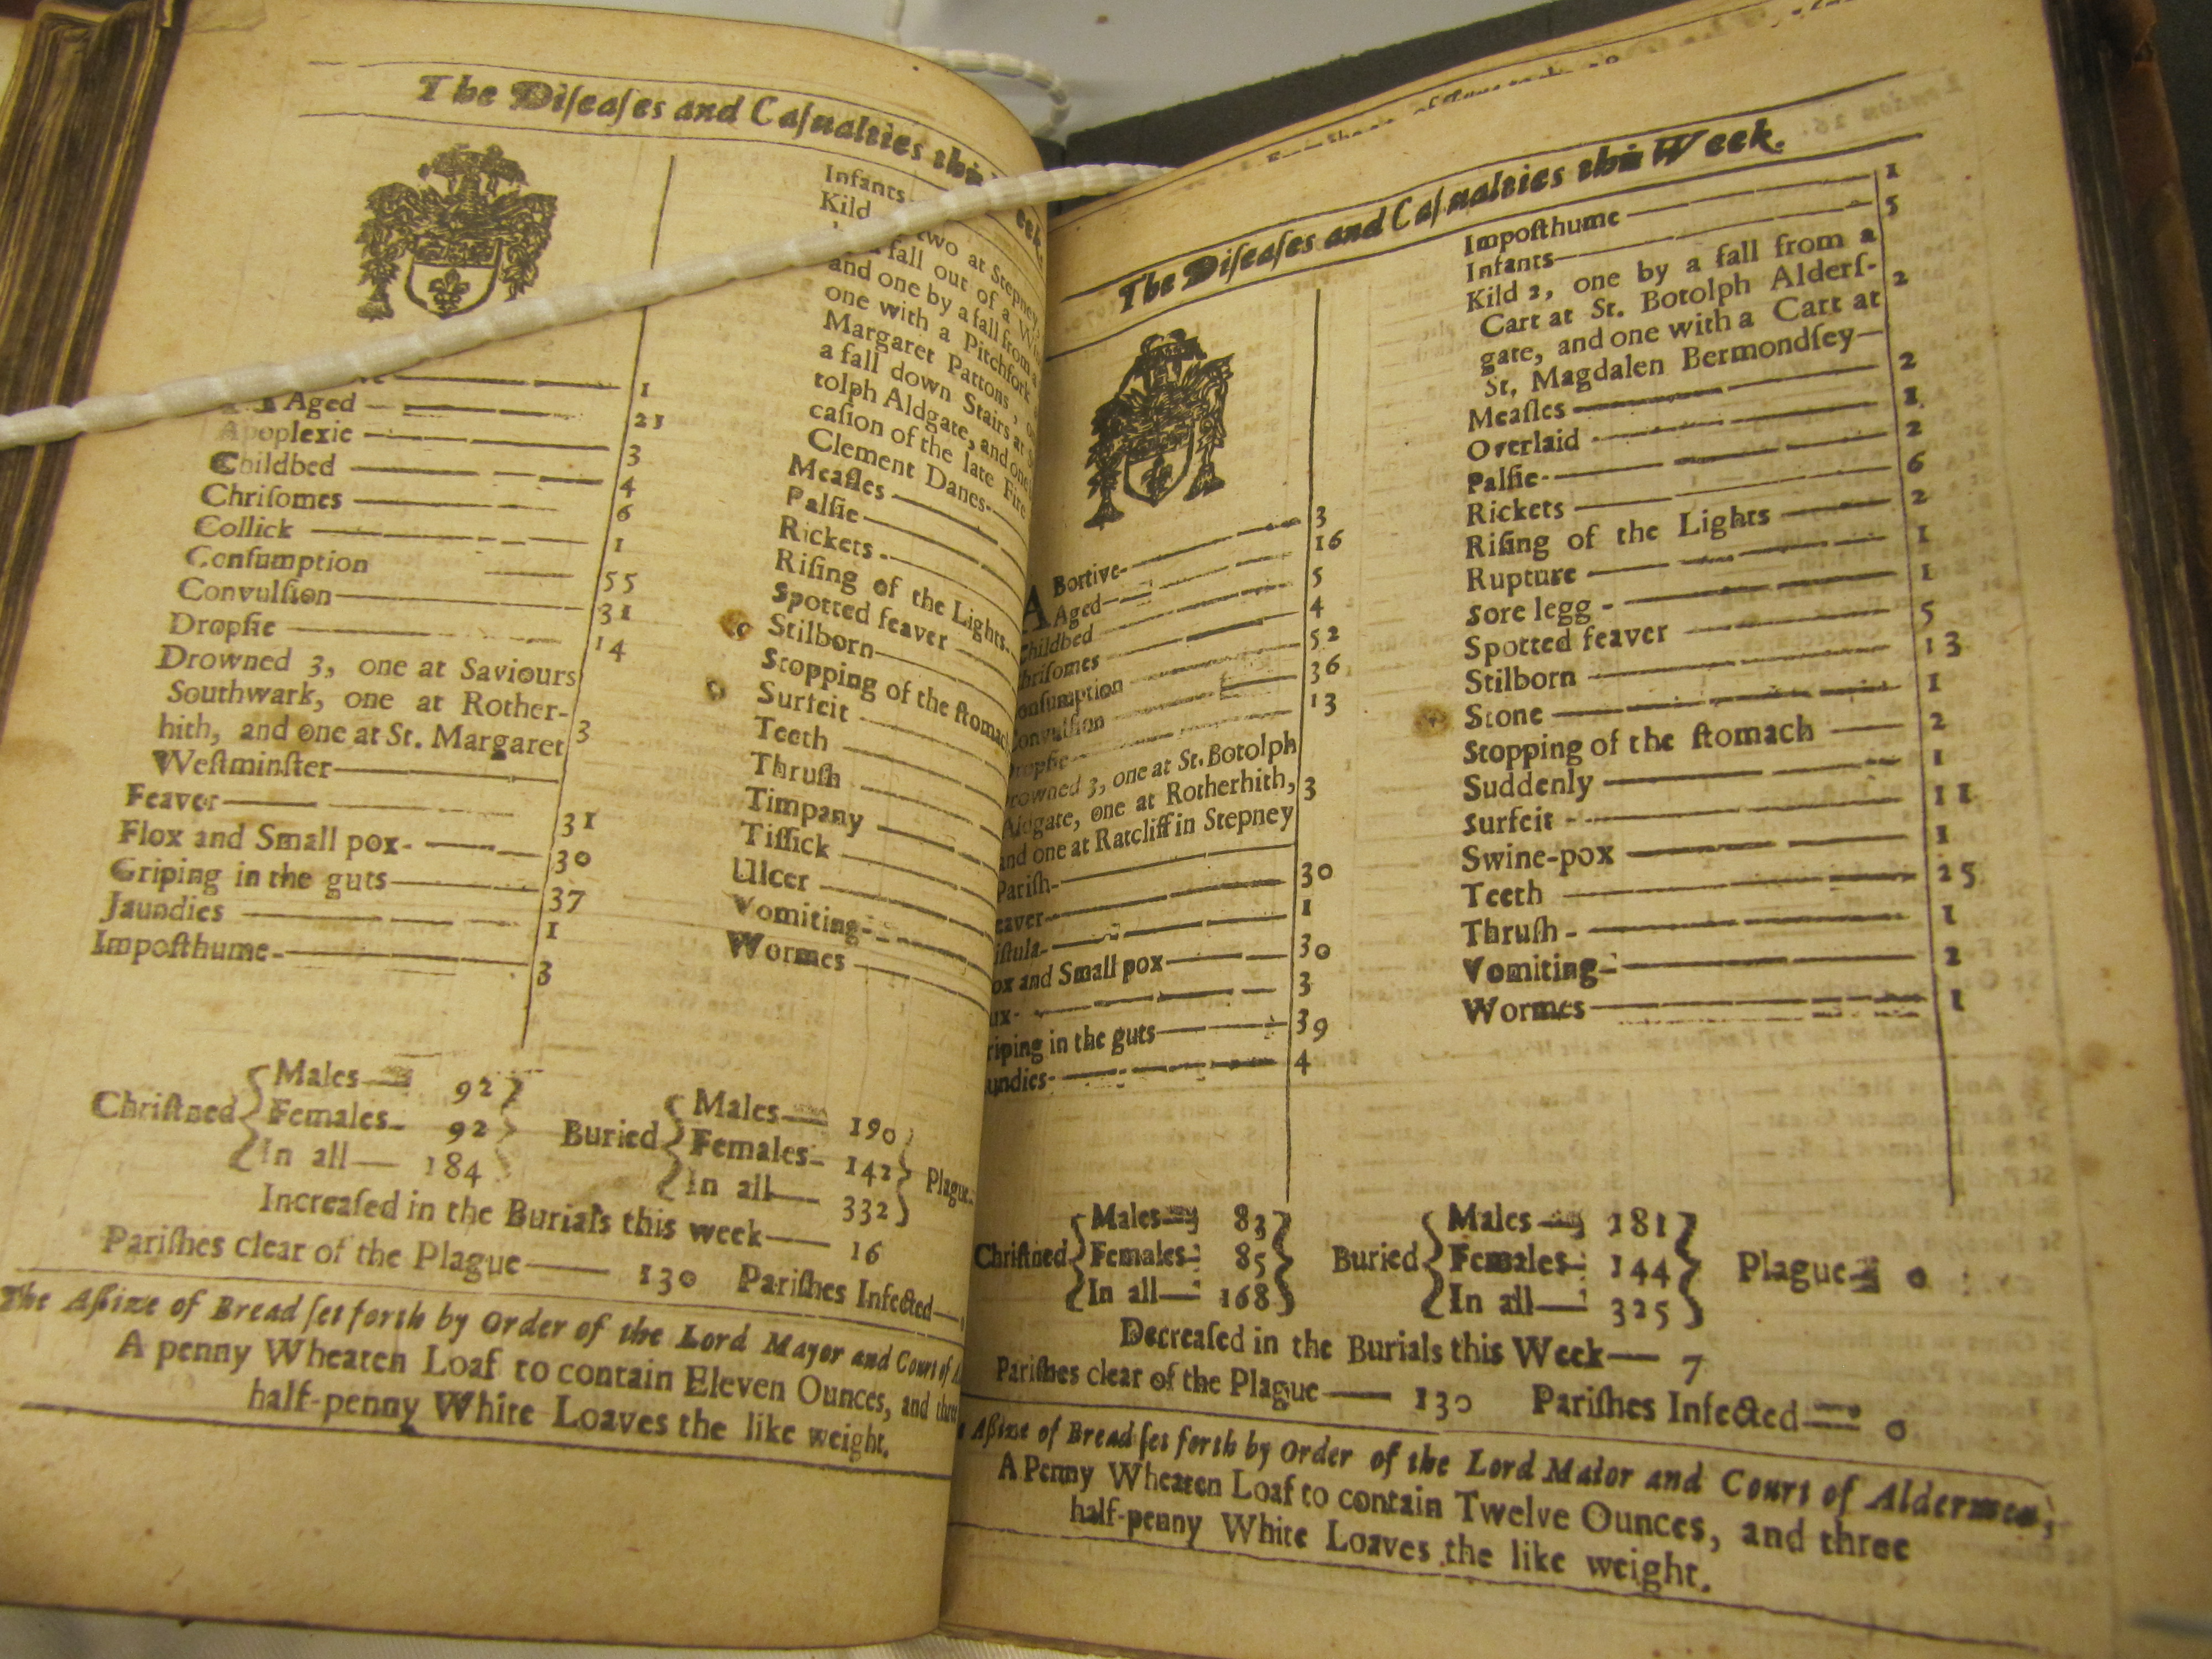 The Diſeaſes and Caſualties this
Aged 21
Apoplexie 3
Childbed 4
Chriſomes 6
Collick 1
Conſumption 55
Convulſion 31
Dropſie 14
Drowned 3, one at Saviours
Southwark, one at Rother-
hith, and one at St. Margaret 3
Weſtminſter
Feaver 31
Flox and Small pox 30
Griping in the guts 37
Jaundies 1
Impoſthume 3
Infants
Kild two at Stepney,
fall out of a
and one by a fall from a
one with a Pitchfork
Margaret Pattons,
a fall down Stairs at
tolph Aldgate, and one
caſion of the late Fire
Clement Danes
Meaſles
Palſie
Rickets
Riſing of the Lights
Spotted feaver
Stilborn
Stopping of the ſtomac
Surfeit
Teeth
Thruſh
Timpany
Tiſſick
Ulcer
Vomiting
Wormes
Chriſtned { Males 92 Females 92 In all 184 }
Buried { Males 190 Females 142 In all 332 } Plague
Increaſed in the Burials this week 16
Pariſhes clear of the Plague 130 Pariſhes Infected
The Aſsize of Bread ſet forth by Order of the Lord Mayor and Court of
A penny Wheaten Loaf to contain Eleven Ounces, and three
half-penny White Loaves the like weight.
The Diſeaſes and Caſualties this Week.
ABortive 3
Aged 16
Childbed 5
hriſomes 4
onſumption 52
Convulſion 36
ropſie 13
rowned 3, one at St. Botolph
Aldgate, one at Rotherhith, 3
and one at Ratcliff in Stepney
Pariſh
eaver 30
iſtula 1
ox and Small pox 30
ux 3
riping in the guts 39
undies 4
Impoſthume 1
Infants 5
Kild 2, one by a fall from a
Cart at St. Botolph Alderſ-
gate, and one with a Cart at 2
St. Magdalen Bermondſey
Meaſles 2
Overlaid 1
Palſie 2
Rickets 6
Riſing of the Lights 2
Rupture 1
Sore legg 1
Spotted feaver 5
Stilborn 13
Stone 1
Stopping of the ſtomach 2
Suddenly 1
Surfeit 11
Swine-pox 1
Teeth 25
Thruſh 1
Vomiting 2
Wormes 1
Chriſtned { Males 83 Females 85 In all 168 }
Buried { Males 181 Females 144 In all 325 } Plague 0
Decreaſed in the Burials this Week 7
Pariſhes clear of the Plague 130 Pariſhes Infected 0
Aſsize of Bread ſet forth by Order of the Lord Maior and Court of Aldermen,
A Penny Wheaten Loaf to contain Twelve Ounces, and three
half-penny White Loaves the like weight.